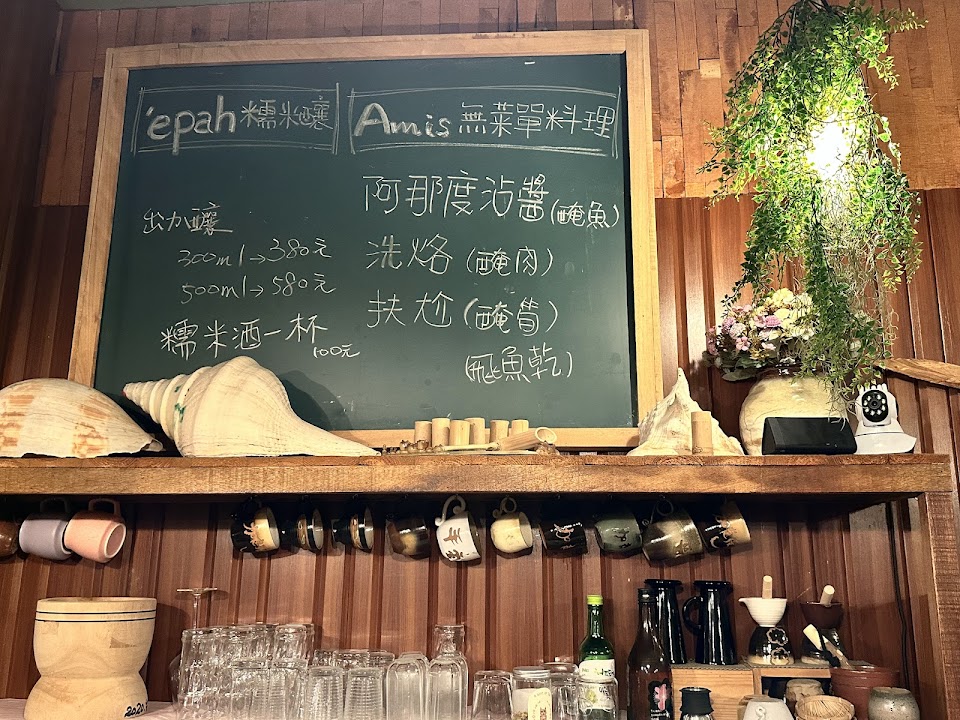 'epah 糯米釀
Amis 無菜單料理
出力釀
300ml→380元
500ml→580元
糯米酒一杯
100元
阿那度沾醬(醃魚)
洗烙(醃肉)
扶尬(醃筍)
(飛魚乾)